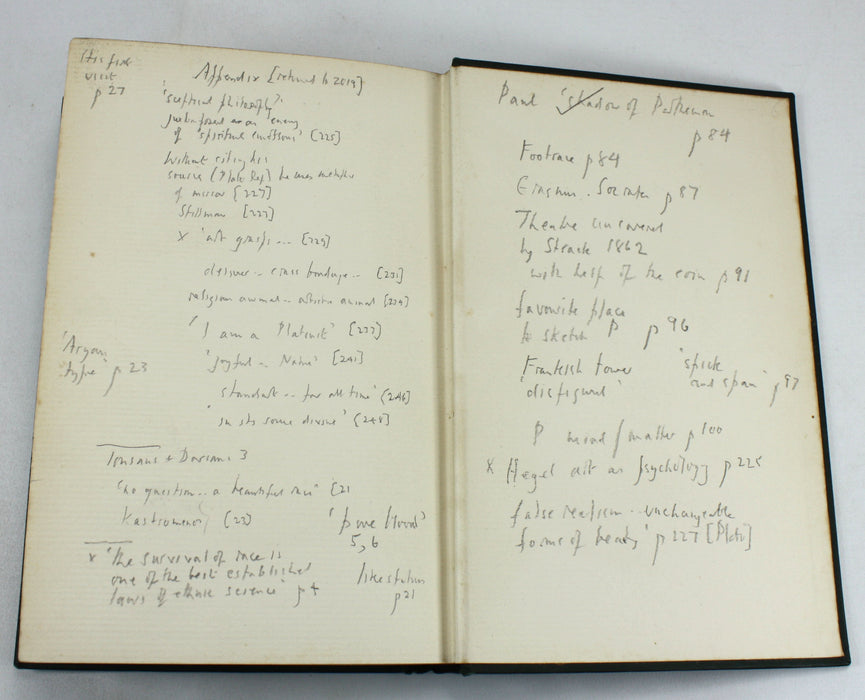 His first
visit
p 27
Appendix [returned to 2019]
'sceptical philosophy'
juxtaposed as an 'enemy
of 'spiritual emotions' [225]
Without citing his
source (Plato Rep) he uses metaphor
of mirror [227]
Stillman [227]
x 'art grasps ... [229]
discover .. bondage .. [231]
religious animal .. artistic animal [234]
'I am a Platonist' [237]
'joyful .. Nature' [241]
standard .. for all time' [246]
'in its some divine' [248]
'Aryan
type' p 23
Ionians & Dorians 3
'no question .. a beautiful race' [21
Kastromenos (22)
'pure blood'
5, 6
x 'the survival of race is
one of the best established
laws of ethnic science' p 4
like statues
p 21
Paul 'shadow of Parthenon
p 84
Footrace p 84
Socrates p 87
Theatre uncovered
by Strack 1862
with help of the coin p 91
favourite place
to sketch P p 96
Frankish tower
'disfigured'
'spick
and span' p 97
P mind / matter p 100
x Hegel art as psychology p 225
false realism .. unchangeable
forms of beauty' p 227 [Plato]